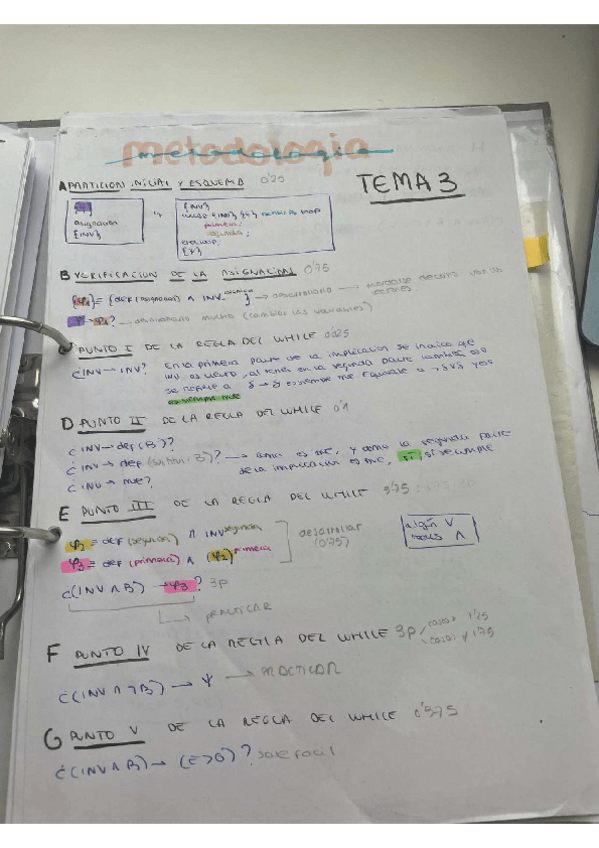 metodologia
TEMA 3
A PARTICION INICIAL Y ESQUEMA 0'25
asignacion
{INV}
{INV}
primera;
segunda;
{Ψ}
B VERIFICACION DE LA ASIGNACION 0'75
{φ1} ≡ {def (asignacion) ∧ INV } → desarrollarlo →
φ → φ1? → desarrollarlo mucho (cambiar las variables)
C PUNTO I DE LA REGLA DEL WHILE 0'25
¿INV → INV? En la primera parte de la implicacion se indica que
INV es cierto, al estar en la segunda parte tambien
se refiere a δ → δ es siempre true equivale a ¬δ∨δ y eso
es siempre true
D PUNTO II DE LA REGLA DEL WHILE 0'1
¿INV → def (B)?
¿INV → def ( B)? → como es true, y como la segunda parte
de la implicacion es true, si, si se cumple
¿INV → true?
E PUNTO III DE LA REGLA DEL WHILE 3'75
φ2 ≡ def (segunda) ∧ INV segunda
φ3 ≡ def (primera) ∧ (φ2) primera
desarrollar
(0'75)
algún ∨
todos ∧
¿(INV ∧ B) → φ3? 3p
PRACTICAR
F PUNTO IV DE LA REGLA DEL WHILE 3p
¿(INV ∧ ¬B) → Ψ → PRACTICAR
G PUNTO V DE LA REGLA DEL WHILE 0'575
¿(INV ∧ B) → (E>0)? sale facil